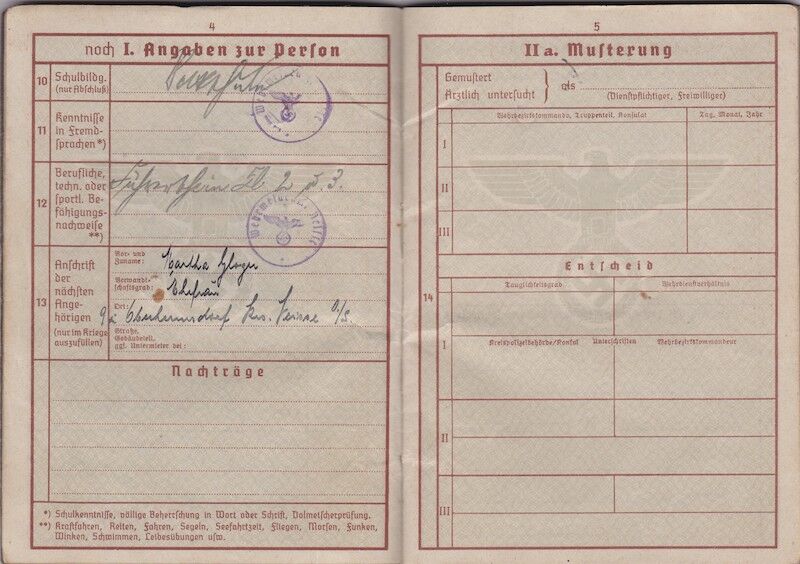 4
noch I. Angaben zur Person
10 Schulbildg.
(nur Abschluß)
Volksschule
11 Kenntnisse
in Fremd-
sprachen*)
12 Berufliche,
techn. oder
sportl. Be-
fähigungs-
nachweise
**)
Führerschein Kl. 2 u. 3.
Wehrmeldeamt Neisse
13 Anschrift
der
nächsten
Ange-
hörigen
(nur im Kriege
auszufüllen)
Vor- und
Zuname:
Martha
Verwandt-
schaftsgrad:
Ehefrau
Ort:
Oberhermsdorf Krs. Neisse O/S.
Straße,
Gebäudeteil,
ggf. Untermieter bei:
Nachträge
*) Schulkenntnisse, völlige Beherrschung in Wort oder Schrift, Dolmetscherprüfung.
**) Kraftfahren, Reiten, Fahren, Segeln, Seefahrtzeit, Fliegen, Morsen, Funken,
Winken, Schwimmen, Leibesübungen usw.
5
IIa. Musterung
Gemustert
Ärztlich untersucht
} als
(Dienstpflichtiger, Freiwilliger)
Wehrbezirkskommando, Truppenteil, Konsulat Tag, Monat, Jahr
I
II
III
Entscheid
14
Tauglichkeitsgrad Wehrdienstverhältnis
Kreispolizeibehörde/Konsul Unterschriften Wehrbezirkskommandeur
I
II
III